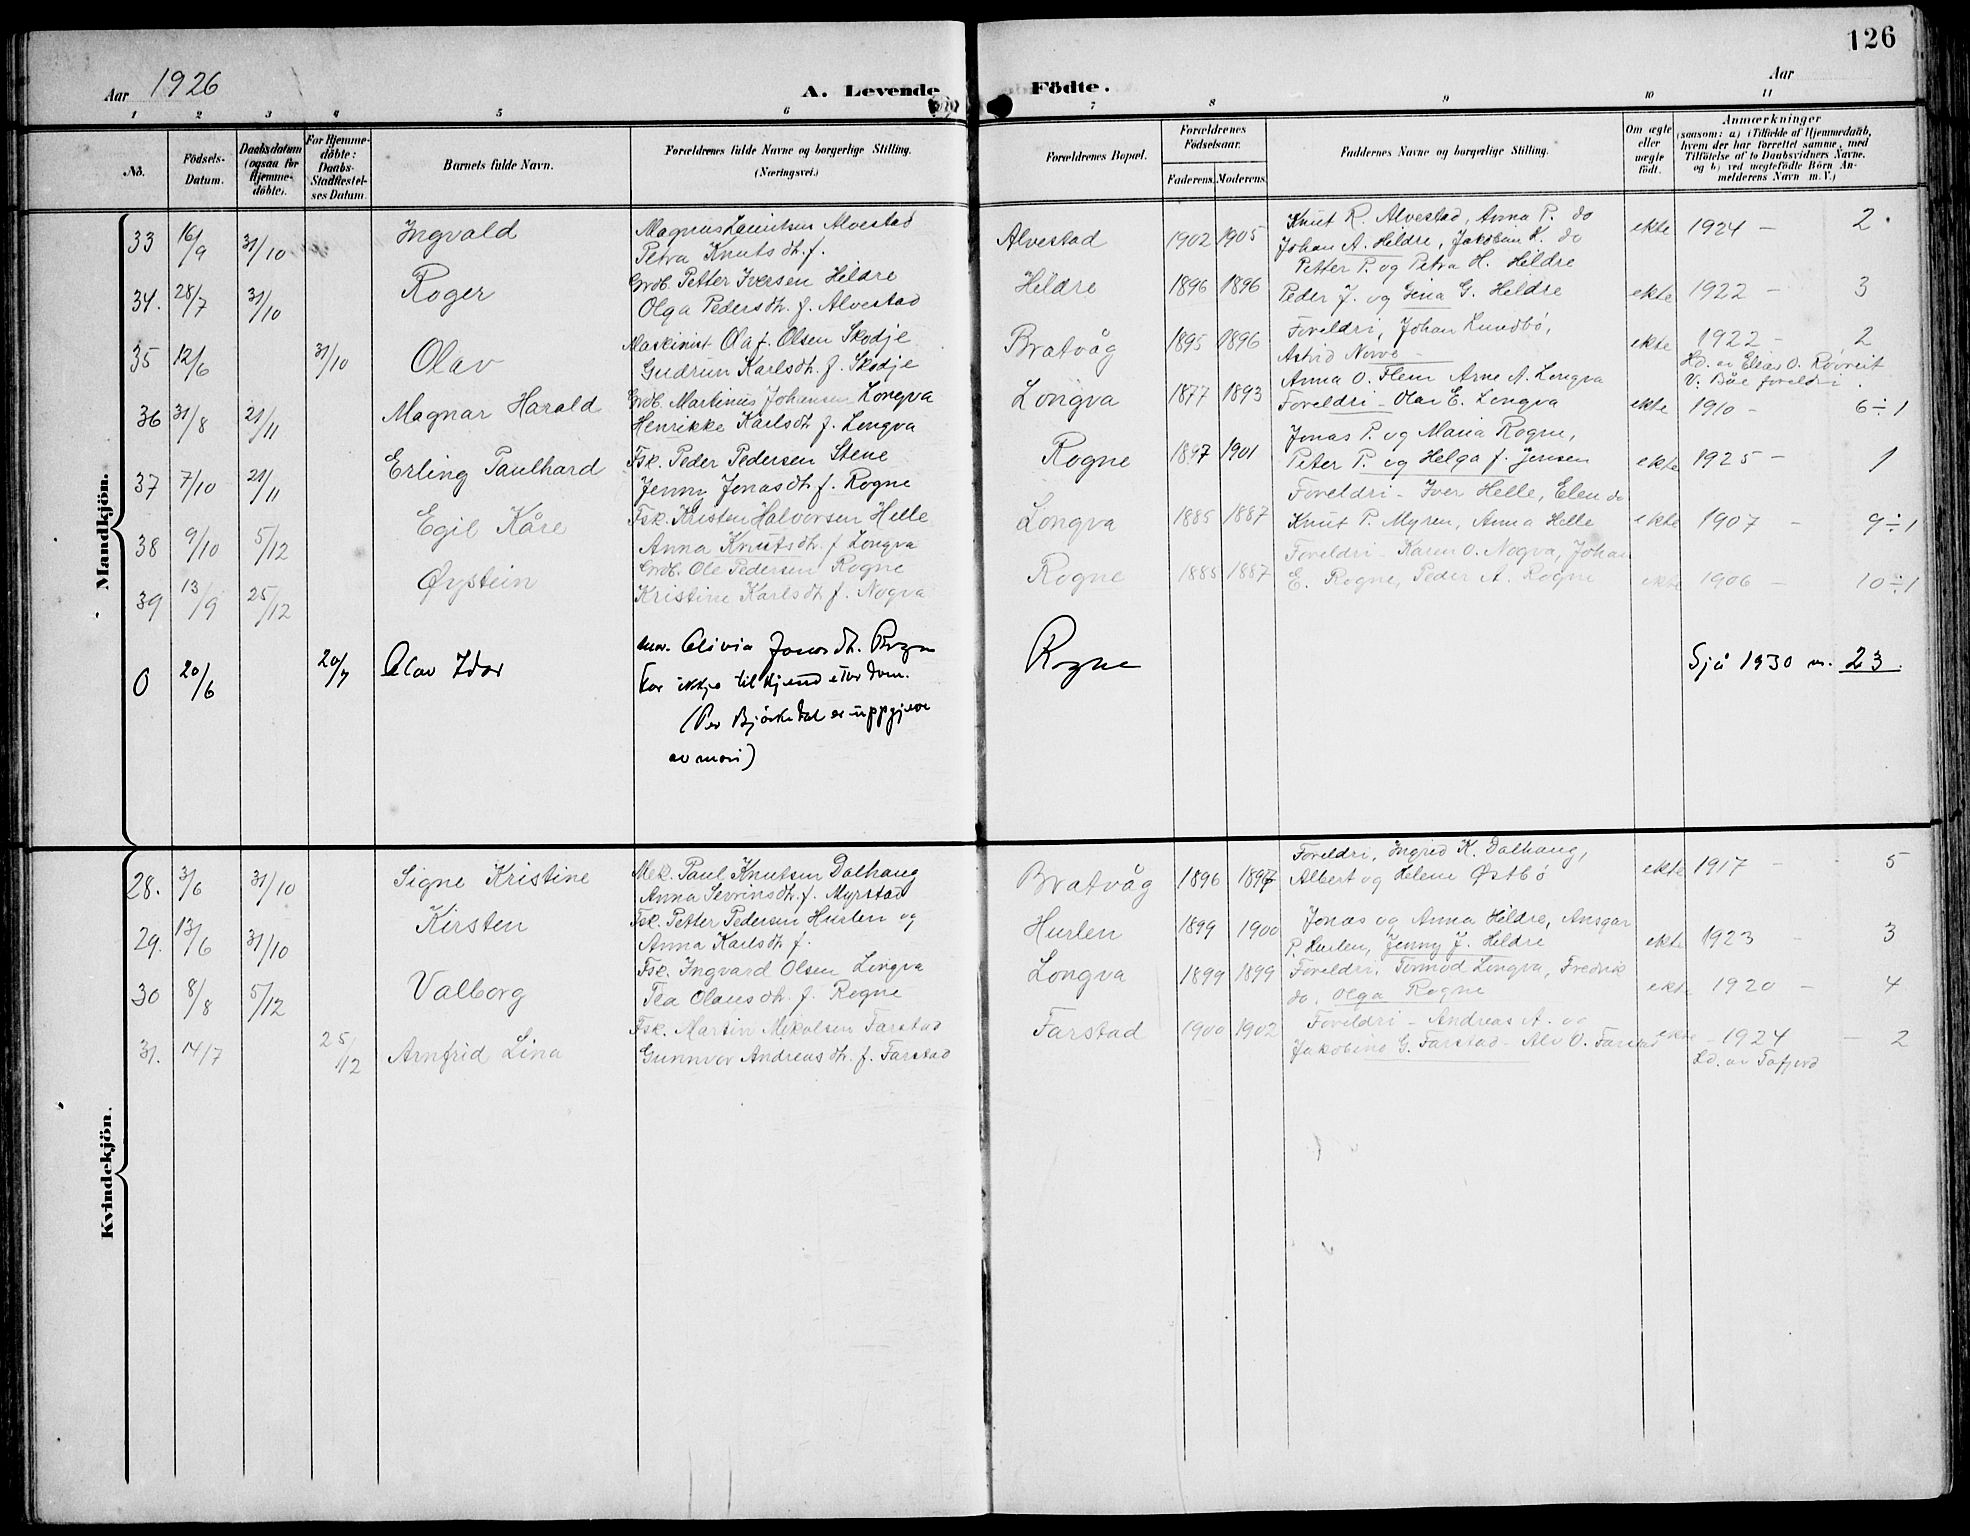 126
Aar 1926
A. Levende Födte.
Aar
1 2 3 4 5 6 7 8 9 10 11
No.
Födsels-Datum.
Daabsdatum (ogsaa for Hjemme-döbte).
For Hjemme-döbte: Daabs-Stadfestel-ses Datum.
Barnets fulde Navn.
Forældrenes fulde Navne og borgerlige Stilling.
(Næringsvei.)
Forældrenes Bopæl.
Forældrenes Födselsaar.
Faderens. Moderens.
Faddernes Navne og borgerlige Stilling.
Om ægte eller uegte födt.
Anmærkninger
(saasom: a) i Tilfælde af Hjemmedaab, hvem der har forrettet samme, med Tilföielse af to Daabsvidners Navne, og b) ved uegtefödte Börn An-melderens Navn m. V.)
Mandkjön.
33 16/9 31/10 Ingvald Magnus Lauritsen Alvestad Alvestad 1902 1905 Knut R. Alvestad, Anna P. do ekte 1924 – 2
Petra Knutsdh. f. Johan A. Hildre, Jakobine K. do
34. 28/7 31/10 Roger Grdb. Petter Iversen Hildre Hildre 1896 1896 Petter P. og Petra H. Hildre ekte 1922 – 3
Olga Pedersdh. f. Alvestad Peder J. og Gina G. Hildre
35 12/6 31/10 Olav Maskinist Olaf Olsen Skodje Bratvåg 1895 1896 Foreldri, Johan Lundbö, ekte 1922 – 2
Gudrun Karlsdh. f. Skodje Astrid Norve – Hd. av Elias O. Rövreit
V. Bøe foreldri.
36 31/8 21/11 Magnar Harald Grdb. Martinus Johansen Longva Longva 1877 1893 Anna O. Flem Arne A. Longva ekte 1910 – 6÷1
Henrikke Karlsdh f. Longva Foreldri – Olav E. Longva
37 7/10 21/11 Erling Paulhard Fsk. Peder Pedersen Stene Rogne 1897 1901 Jonas P. og Maria Rogne, ekte 1925 – 1
Jenny Jonasdh f. Rogne Peter P. og Helga f. Jensen
38 9/10 5/12 Egil Kåre Fsk. Kristen Halvorsen Helle Longva 1885 1887 Foreldri – Iver Helle, Elen do ekte 1907 – 9÷1
Anna Knutsdh. f Longva Knut P. Myren, Anna Helle
39 13/9 25/12 Øystein Grdb. Ole Pedersen Rogne Rogne 1885 1887 Foreldri – Karen O. Nogva, Johan ekte 1906 – 10÷1
Kristine Karlsdh f. Nogva E. Rogne, Peder A. Rogne
0 20/6 20/7 Olav Idar mor. Olivia Jonasdh. Rogne Rogne Sjå 1930 nr. 23.
Far ikkje tilkjend etter dom.
(Per Bjørkedal er uppgjeve
av mori)
Kvindekjön.
28. 3/6 31/10 Signe Kristine Mek. Paul Knutsen Dalhaug Bratvåg 1896 1897 Foreldri, Ingrid K. Dalhaug, ekte 1917 – 5
Anna Sevrinsdh. f. Myrstad Albert og Helene Østbö
29. 13/6 31/10 Kirsten Fsk. Petter Pedersen Hurlen og Hurlen 1899 1900 Jonas og Anna Hildre, Ansgar ekte 1923 – 3
Anna Karlsdh f. P. Hurlen, Jenny J. Hildre
30 8/8 5/12 Valborg Fsk. Ingvard Olsen Longva Longva 1899 1899 Foreldri. Tormod Longva, Fredrik ekte 1920 – 4
Tea Olausdh. f. Rogne do. Olga Rogne
31. 14/7 25/12 Arnfrid Lina Fsk. Martin Mikalsen Farstad Farstad 1900 1902 Foreldri – Andreas A. og ekte 1924 – 2
Gunnvor Andreasdh. f. Farstad Jakobine G. Farstad – Alv O. Farstad Hd. av Tafjord